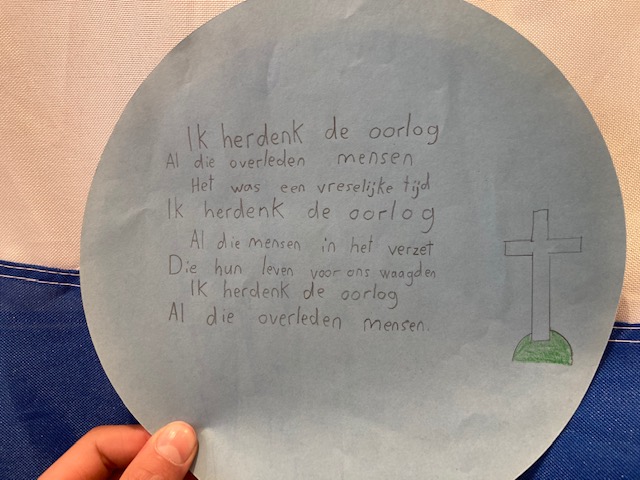 Ik herdenk de oorlog
Al die overleden mensen
Het was een vreselijke tijd
Ik herdenk de oorlog
Al die mensen in het verzet
Die hun leven voor ons waagden
Ik herdenk de oorlog
Al die overleden mensen.